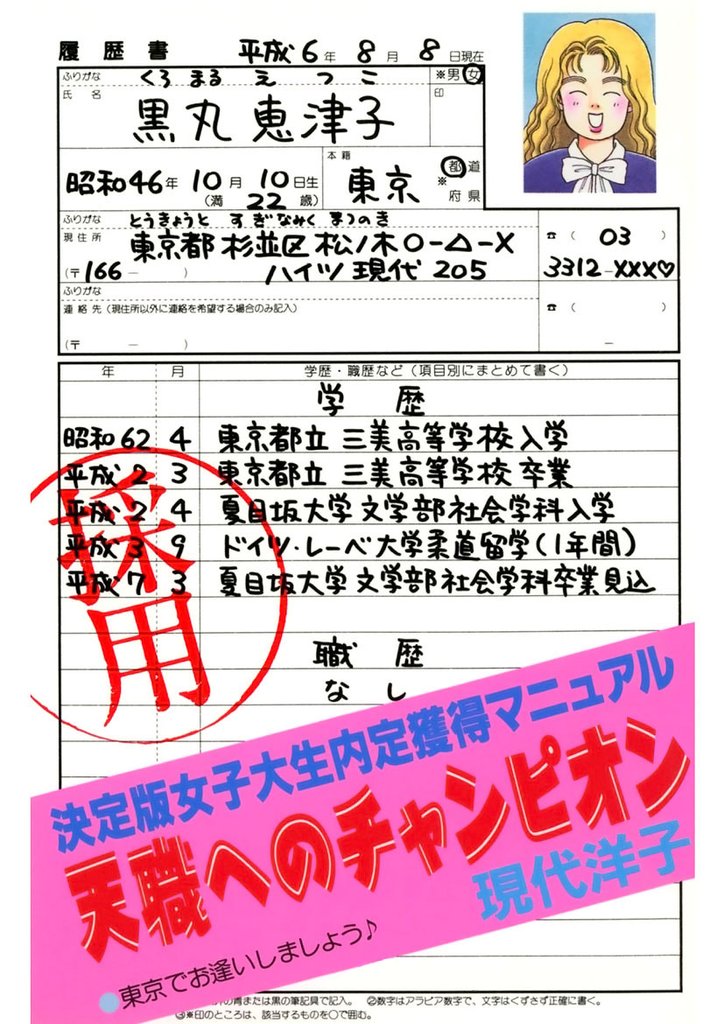 履歴書 平成6年8月8日現在
ふりがな くろまる えつこ ※男女
氏名 黒丸恵津子 印
昭和46年10月10日生 (満22歳) 本籍 東京 ※都道府県
ふりがな とうきょうと すぎなみく まつのき
現住所 東京都杉並区松ノ木○-△-X ☎(03)
(〒166-) ハイツ現代205 3312-XXX♡
ふりがな
連絡先(現住所以外に連絡を希望する場合のみ記入) ☎( )
(〒 - ) -
年 月 学歴・職歴など(項目別にまとめて書く)
学歴
昭和62 4 東京都立三美高等学校入学
平成2 3 東京都立三美高等学校卒業
平成2 4 夏目坂大学文学部社会学科入学
平成3 9 ドイツ・レーベ大学柔道留学(1年間)
平成7 3 夏目坂大学文学部社会学科卒業見込
採用
職歴
なし
決定版女子大生内定獲得マニュアル
天職へのチャンピオン
現代洋子
●東京でお逢いしましょう♪
の青または黒の筆記具で記入。 ②数字はアラビア数字で、文字はくずさず正確に書く。
③※印のところは、該当するものを○で囲む。